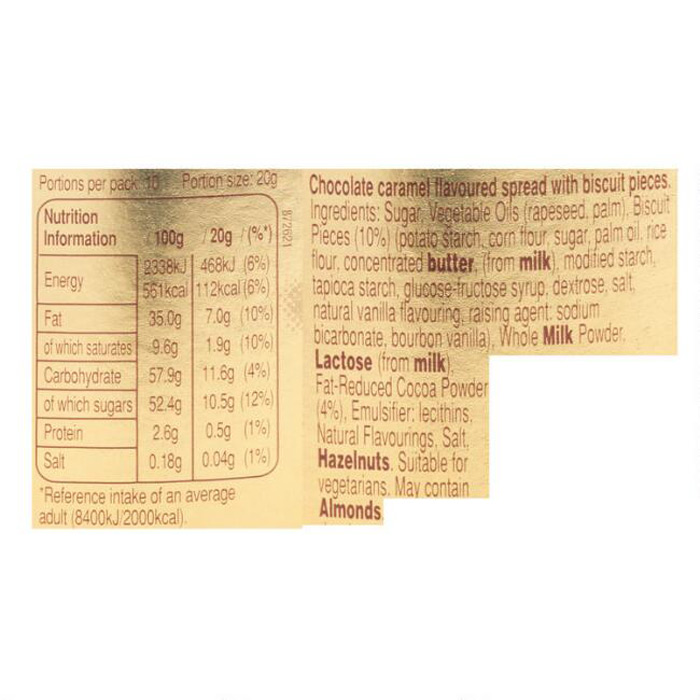 Portions per pack 10 Portion size: 20g
Nutrition
Information 100g / 20g / (%*)
Energy 2338kJ 468kJ (6%)
561kcal 112kcal (6%)
Fat 35.0g 7.0g (10%)
of which saturates 9.6g 1.9g (10%)
Carbohydrate 57.9g 11.6g (4%)
of which sugars 52.4g 10.5g (12%)
Protein 2.6g 0.5g (1%)
Salt 0.18g 0.04g (1%)
*Reference intake of an average
adult (8400kJ/2000kcal).
Chocolate caramel flavoured spread with biscuit pieces.
Ingredients: Sugar, Vegetable Oils (rapeseed, palm), Biscuit
Pieces (10%) (potato starch, corn flour, sugar, palm oil, rice
flour, concentrated butter, (from milk), modified starch,
tapioca starch, glucose-fructose syrup, dextrose, salt,
natural vanilla flavouring, raising agent: sodium
bicarbonate, bourbon vanilla), Whole Milk Powder,
Lactose (from milk),
Fat-Reduced Cocoa Powder
(4%), Emulsifier: lecithins,
Natural Flavourings, Salt,
Hazelnuts. Suitable for
vegetarians. May contain
Almonds